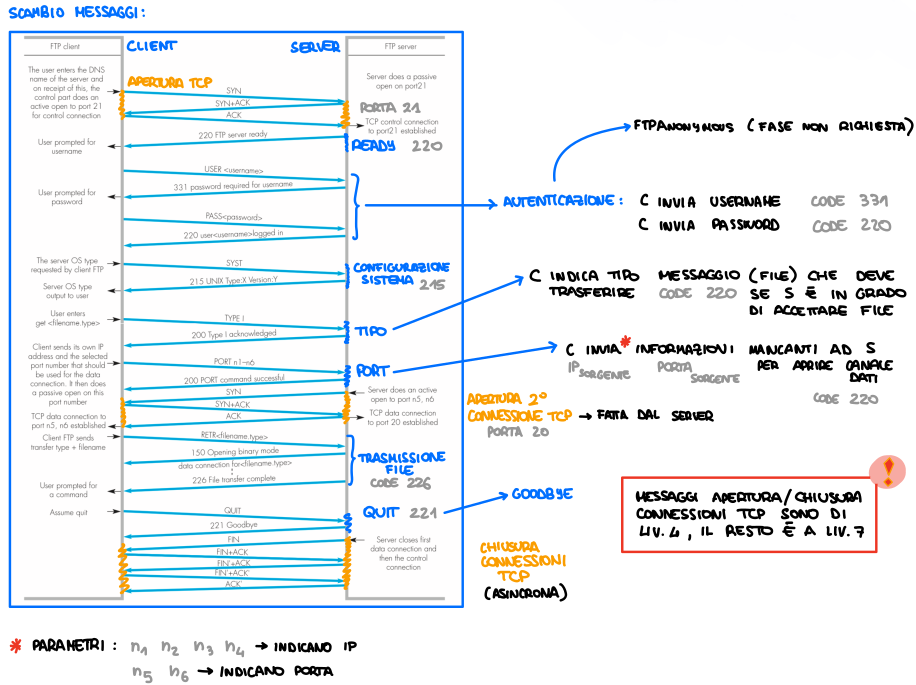 SCAMBIO MESSAGGI:
FTP client
CLIENT
SERVER
FTP server
The user enters the DNS
name of the server and
on receipt of this, the
control part does an
active open to port 21
for control connection
APERTURA TCP
SYN
SYN+ACK
ACK
Server does a passive
open on port21
PORTA 21
TCP control connection
to port21 established
User prompted for
username
220 FTP server ready
READY 220
USER <username>
331 password required for username
User prompted for
password
PASS<password>
220 user<username>logged in
FTP ANONYMOUS (FASE NON RICHIESTA)
AUTENTICAZIONE: C INVIA USERNAME CODE 331
C INVIA PASSWORD CODE 220
The server OS type
requested by client FTP
SYST
215 UNIX Type:X Version:Y
Server OS type
output to user
CONFIGURAZIONE
SISTEMA 215
C INDICA TIPO MESSAGGIO (FILE) CHE DEVE
TRASFERIRE CODE 220 SE S È IN GRADO
DI ACCETTARE FILE
User enters
get <filename.type>
TYPE I
200 Type I acknowledged
TIPO
Client sends its own IP
address and the selected
port number that should
be used for the data
connection. It then does
a passive open on this
port number
PORT n1–n6
200 PORT command successful
PORT
C INVIA * INFORMAZIONI MANCANTI AD S
IP SORGENTE PORTA SORGENTE PER APRIRE CANALE
DATI
CODE 220
SYN
SYN+ACK
ACK
Server does an active
open to port n5, n6
TCP data connection
to port 20 established
TCP data connection to
port n5, n6 established
APERTURA 2°
CONNESSIONE TCP → FATTA DAL SERVER
PORTA 20
Client FTP sends
transfer type + filename
RETR<filename.type>
150 Opening binary mode
data connection for<filename.type>
226 File transfer complete
TRASMISSIONE
FILE
CODE 226
User prompted for
a command
Assume quit
QUIT
221 Goodbye
QUIT 221
GOODBYE
FIN
FIN+ACK
FIN'+ACK
FIN'+ACK'
ACK'
Server closes first
data connection and
then the control
connection
CHIUSURA
CONNESSIONI
TCP
(ASINCRONA)
!
MESSAGGI APERTURA/CHIUSURA
CONNESSIONI TCP SONO DI
LIV. 4, IL RESTO È A LIV. 7
* PARAMETRI: n1 n2 n3 n4 → INDICANO IP
n5 n6 → INDICANO PORTA